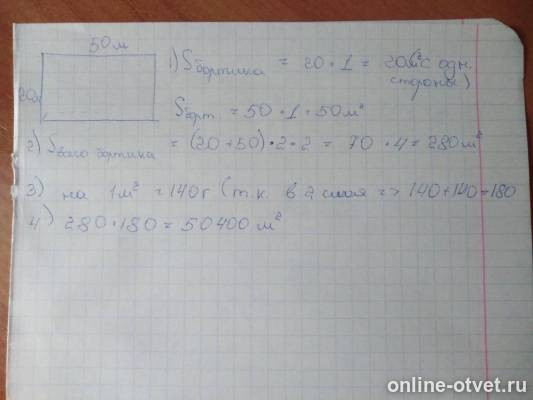 50м
1) Sбортика = 20 · 1 = 20м² (с одн. стороны)
20м
Sборт. = 50 · 1 = 50м²
2) Sвсего бортика = (20 + 50) · 2 · 2 = 70 · 4 = 280м²
3) на 1м² = 140г (т.к. в 2 слоя => 140+140=180
4) 280 · 180 = 50400 м²
online-otvet.ru